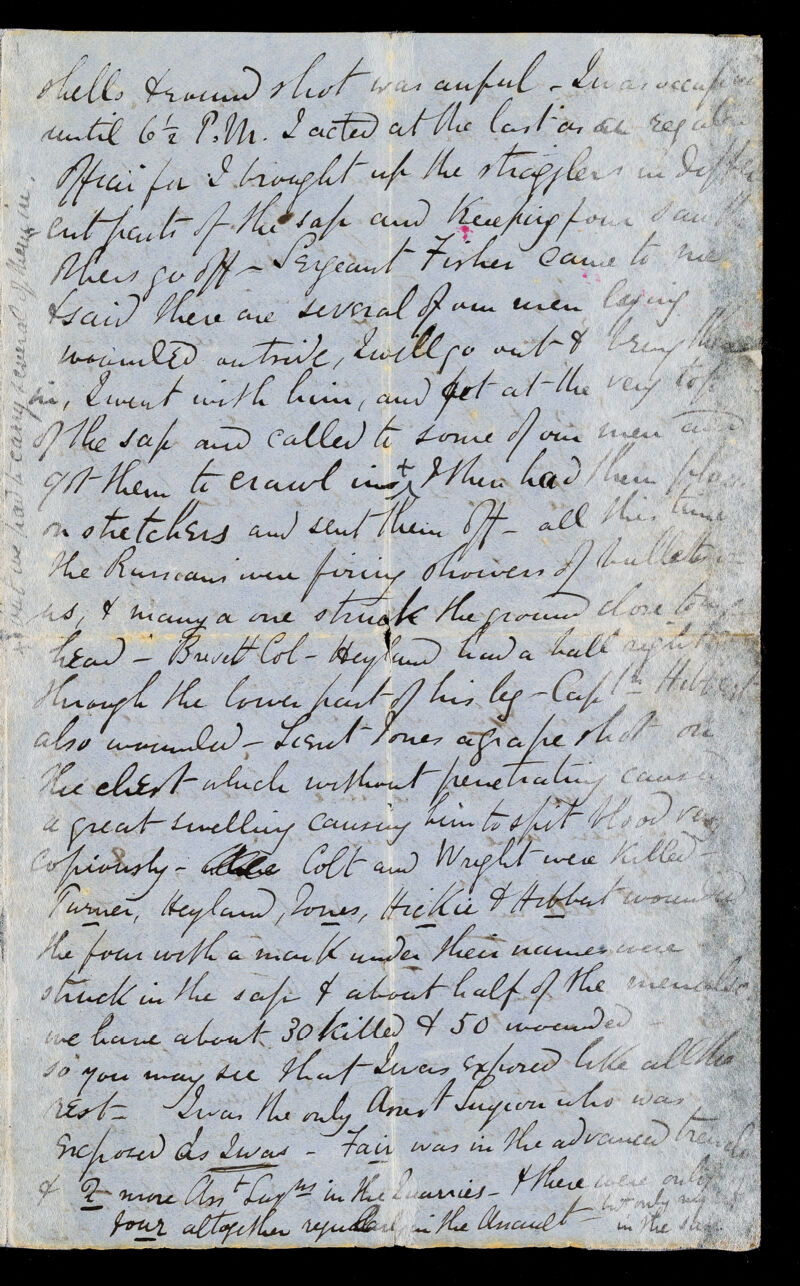 shells & round shot was awful - I was occupied
until 6½ P.M. I acted at the last as a regular
officer for I brought up the stragglers in differ
ent parts of the sap and keeping four &
thers go off - Sergeant Fisher came to me
& said there are several of our men laying
wounded outside, I will go out & bring them
in, I went with him, and got at the very top
of the sap and called to some of our men and
got them to crawl in & I then had them placed
on stretchers and sent them off - all this time
the Russians were firing showers of bullets
us, & many a one struck the ground close to my
head - Brevett Col - Heyland had a ball right
through the lower part of his leg - Captn Hibbert
also wounded - Lieut Jones a grape shot on
the chest which without penetrating caused
a great swelling causing him to spit blood very
copiously - Colt and Wright were killed -
Turner, Heyland, Jones, Hickie & Hibbert wounded
the four with a mark under their names were
struck in the sap & about half of the men also
we have about 30 killed & 50 wounded -
so you may see that I was exposed like all the
rest - I was the only Assist Surgeon who was
exposed as I was - Fair was in the advanced trench
& 2 more Asst Surgns in the Quarries - & there were only
four altogether regularly in the Assault - but only my
in the sap
we had to carry several of them in.